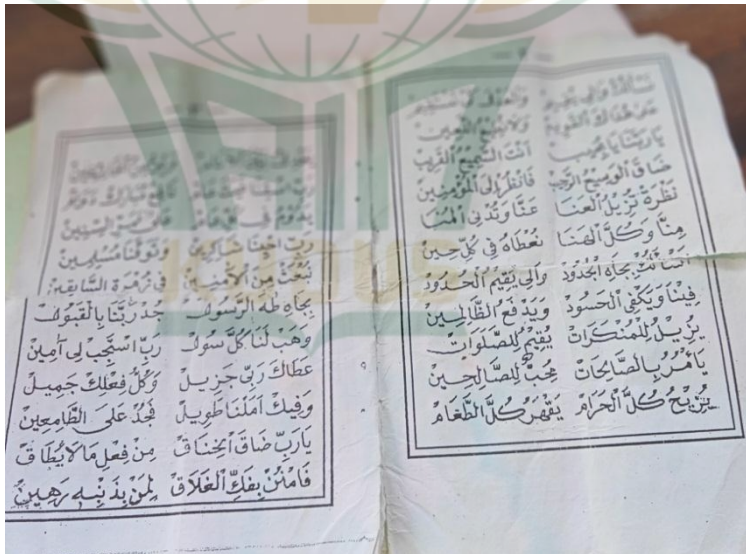 عَلَى هُدَاكَ الْقَوِيمْ وَلَا نُطِيعُ اللَّعِينْ
يَارَبَّنَا يَا مُجِيبْ أَنْتَ السَّمِيعُ الْقَرِيبْ
ضَاقَ الْوَسِيعُ الرَّحِيبْ فَانْظُرْ إِلَى الْمُؤْمِنِينْ
نَظْرَةً تُزِيلُ الْعَنَا عَنَّا وَتُدْنِي الْمُنَا
مِنَّا وَكُلَّ الْهَنَا نُعْطَاهُ فِي كُلِّ حِينْ
بِجَاهِ الْجُدُودْ وَالِي يُقِيمُ الْحُدُودْ
فِينَا وَيَكْفِي الْحَسُودْ وَيَدْفَعُ الظَّالِمِينْ
يُزِيلُ لِلْمُنْكَرَاتْ يُقِيمُ لِلصَّلَوَاتْ
يَأْمُرُ بِالصَّالِحَاتْ مُحِبٌّ لِلصَّالِحِينْ
يُزِيحُ كُلَّ الْحَرَامْ يَقْهَرُ كُلَّ الطَّغَامْ
رَبِّ اسْقِنَا غَيْثَ عَامْ نَافِعْ مُبَارَكْ دَوَامْ
يَدُومُ فِي كُلِّ عَامْ عَلَى مَمَرِّ السِّنِينْ
رَبِّ احْيِنَا شَاكِرِينْ وَتَوَفَّنَا مُسْلِمِينْ
نُبْعَثْ مِنَ الْآمِنِينْ فِي زُمْرَةِ السَّابِقِينْ
بِجَاهِ طٰهَ الرَّسُولْ جُدْ رَبَّنَا بِالْقَبُولْ
وَهَبْ لَنَا كُلَّ سُولْ رَبِّ اسْتَجِبْ لِي آمِينْ
عَطَاكَ رَبِّي جَزِيلْ وَكُلُّ فِعْلِكْ جَمِيلْ
وَفِيكَ أَمَلْنَا طَوِيلْ فَجُدْ عَلَى الطَّامِعِينْ
يَارَبِّ ضَاقَ الْخِنَاقْ مِنْ فِعْلِ مَا لَا يُطَاقْ
فَامْنُنْ بِفَكِّ الْغَلَاقْ لِمَنْ بِذَنْبِهِ رَهِينْ
KUDUS